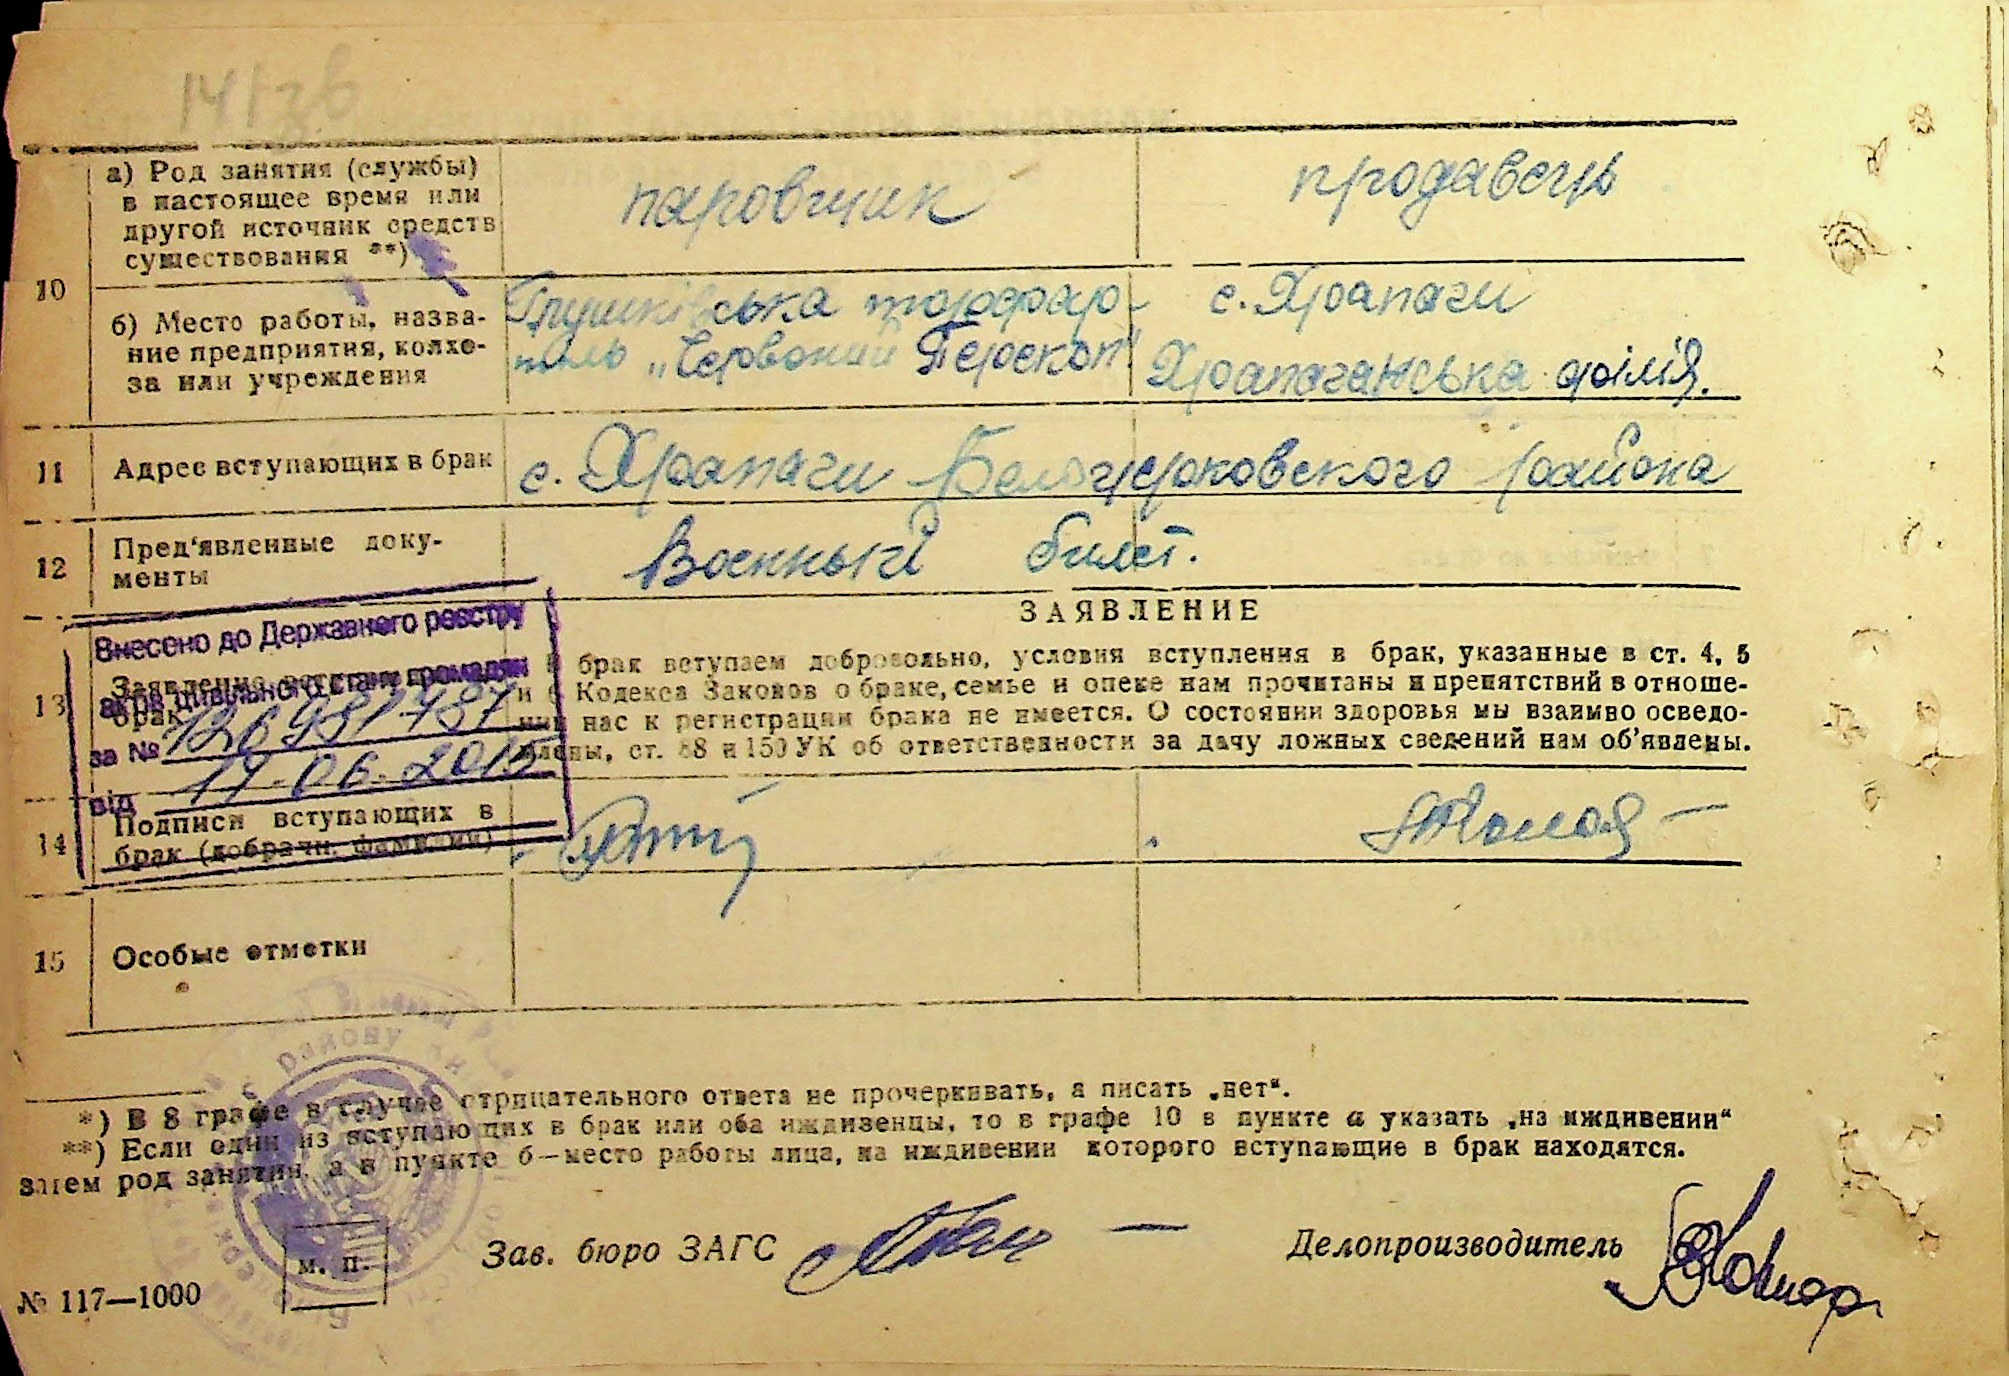 а) Род занятия (службы)
в настоящее время или
другой источник средств
существования **)
паровщик
продавець
10
б) Место работы, назва-
ние предприятия, колхо-
за или учреждения
Глушківська торфар-
тіль „Червоний Перекоп"
с. Храпачи
Храпачанська філія.
11
Адрес вступающих в брак
с. Храпачи Белоцерковского района
12
Пред'явленные доку-
менты
Военный билет.
13
Заявление
брак
ЗАЯВЛЕНИЕ
В брак вступаем добровольно, условия вступления в брак, указанные в ст. 4, 5
и 6 Кодекса Законов о браке, семье и опеке нам прочитаны и препятствий в отноше-
нии нас к регистрации брака не имеется. О состоянии здоровья мы взаимно осведо-
млены, ст. 88 и 150 УК об ответственности за дачу ложных сведений нам об'явлены.
Внесено до Державного реєстру
актів цивільного стану громадян
за №
від
14
Подписи вступающих в
брак (добрачн. фамилии)
15
Особые отметки
*) В 8 графе в случае отрицательного ответа не прочеркивать, а писать „нет".
**) Если один из вступающих в брак или оба иждивенцы, то в графе 10 в пункте а указать „на иждивении"
затем род занятий, а в пункте б—место работы лица, на иждивении которого вступающие в брак находятся.
м. п.
Зав. бюро ЗАГС
Делопроизводитель
№ 117—1000